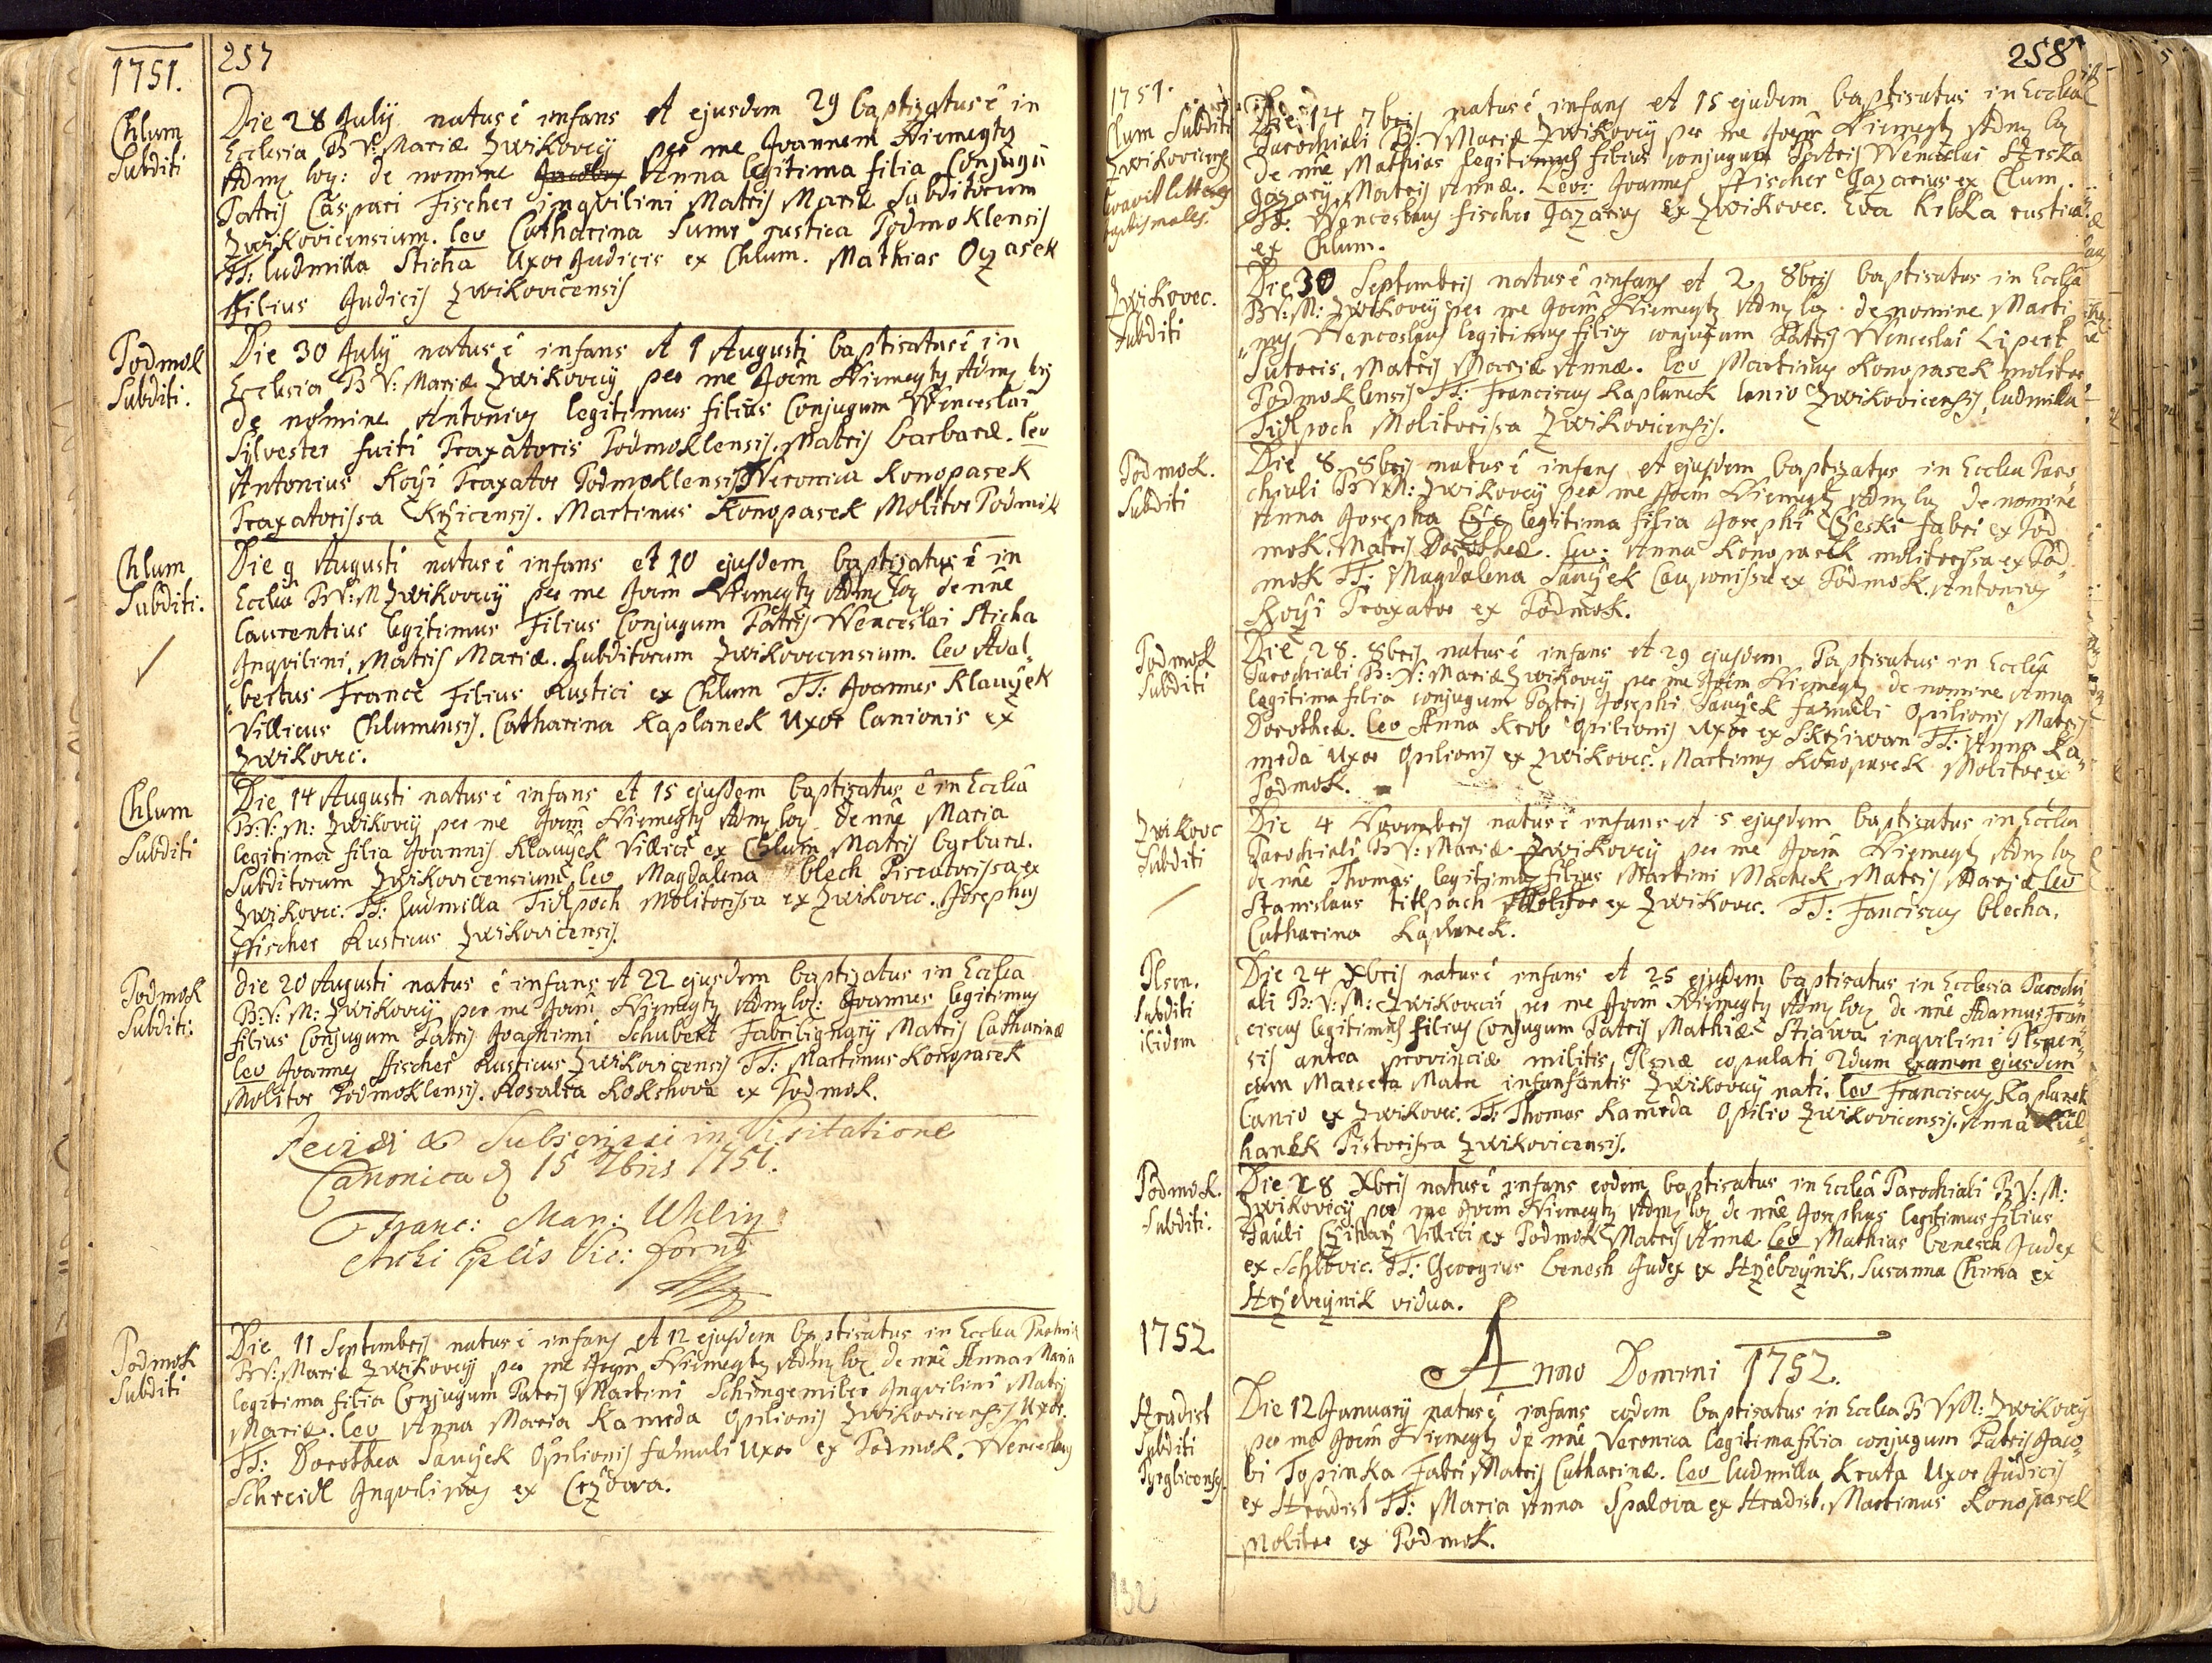 257
1751.
Chlum
Subditi
Die 28 July natus ẽ infans et ejusdem 29 baptizatus ẽ in
Ecclesia B V: Mariæ Zwikovecÿ per me Joannem Niemegtz
Adm loy: de nomine Anna legitima filia Conjugũ
Patris Caspari Fischer inqvilini Matris Mariæ Subditorum
Zwikovicensium. Lev Catharina Sume rustica Podmoklensis
TT: Ludmilla Sticha Uxor Judicis ex Chlum. Mathias
Filius Judicis Zwikovicensis
Podmok
Subditi.
Die 30 July natus ẽ infans et 1 Augusti baptisatus ẽ in
Ecclesia B V: Mariæ Zwikovecÿ per me Joem Niemegtz Adm loy
de nomine Antonius legitimus filius Conjugum Wenceslai
Sylvester fuiti Traxatoris Podmoklensis, Matris Barbaræ. Lev
Antonius Koÿi Traxator Podmoklensis TT Veronica Konopasek
Traxatorissa Kržicensis. Martinus Konopasek Molitor Podmok
Chlum
Subditi.
Die 9 Augusti natus ẽ infans et 10 ejusdem baptizatus ẽ in
Ecclia B V: M Zwikovecÿ per me Joem Niemegtz Adm loy de nne
Laurentius legitimus Filius Conjugum Patris Wenceslai Sticha
Inqvilini, Matris Mariæ. Subditorum Zwikovecensium. Lev Adal-
bertus France Filius Rustici ex Chlum TT: Joannes Klauÿek
Villicus Chlumensis. Catharina Kaplanek Uxor Lanionis ex
Zwikovec.
Chlum
Subditi
Die 14 Augusti natus ẽ infans et 15 ejusdem baptisatus ẽ in Ecclia
B: V: M: Zwikovecÿ per me Joem Niemegtz Adm loy de nne Maria
legitima filia Joannis Klauÿek Villici ex Chlum Matris
Subditorum Zwikovicensium Lev Magdalena Blech Piscatorissa ex
Zwikovec. TT: Ludmilla Tidlpoch Molitorissa ex Zwikovec. Josephus
Fischer Rusticus Zwikovicensis.
Podmok
Subditi.
Die 20 Augusti natus ẽ infans et 22 ejusdem baptizatus in Ecclia
B: V: M: Zwikovecÿ per me Joem Niemegtz Adm loy: Joannes legitimus
filius Conjugum Patris Joachimi Schubert Fabrilignarÿ Matris Catharinæ
Lev Joannes Fischer Rusticus Zwikovicensis TT: Martinus Konopasek
Molitor Podmoklensis. Rosalia Kokshova ex Podmok.
Revidi & Subscripsi in Visitatione
Canonica d 15 7bris 1751.
Franc: Man: Uhlin
Archi Eplis Vic: foran
Podmok
Subditi
Die 11 Septembris natus ẽ infans et 12 ejusdem baptisatus in Ecclia
B V: Mariæ Zwikovecÿ per me Joem Niemegtz Adm loy de nne Anna Maria
legitima filia Conjugum Patris Martini Schingemiler Inqvilini Matris
Mariæ. Lev Anna Maria Kameda Opilionis Zwikovicensis Uxor
TT: Dorothea Sauÿek Opilionis famuli Uxor ex Podmok. Wenceslaus
Schreidl Inqvilinus ex
258
1751.
Clum Subditi
Zwikovicens
levavit litteras
baptismales.
Die 14 7bris natus ẽ infans et 15 ejudem baptisatus in Ecclia
Parochiali B: V Mariæ Zwikovecÿ per me Joem Niemegtz Adm loy
de nne Mathias legitimus filius conjugum Patris Wenceslai Strska
Gazarÿ, Matris Annæ. Lev: Joannes Fischer Gazarius ex Clum.
TT: Wenceslaus Fischer Gazarius ex Zwikovec. Eva Krbka rustica
ex Chlum.
Zwikovec.
Subditi
Die 30 Septembris natus ẽ infans et 2 8bris baptisatus in Ecclia
B V: M: Zwikovecÿ per me Joem Niemegtz Adm loy. de nomine Marti-
nus Wenceslaus legitimus filius conjugum Patris Wenceslai Lipert
Sutoris, Matris Mariæ Annæ. Lev Martinus Konopasek molitor
Podmoklensis TT: Franciscus Kaplanek lanio Zwikovicensis, Ludmilla
Tidlpoch Molitorissa Zwikovicensis.
Podmok.
Subditi
Die 8 8bris natus ẽ infans et ejusdem baptizatus in Ecclia Paro
chiali B V M: Zwikovecÿ per me Joem Niemegtz Adm loy de nomine
Anna Josepha legitima filia Josephi Czeski fabri ex Pod
mok, Matris Dorotheæ. Lev: Anna Konopasek molitorissa ex Pod-
mok TT: Magdalena Sauÿek Cauponissa ex Podmok. Antonius
Koÿi Traxator ex Podmok.
Podmok
Subditi
Die 28. 8bris natus ẽ infans et 29 ejusdem Baptisatus in Ecclia
Parochiali B: V: Mariæ Zwikovecÿ per me Joem Niemegtz de nomine Anna
legitima filia conjugum Patris Josephi Sauÿek famuli Opilionis Matris
Dorothea. Lev Anna Krob Opilionis Uxor ex Skrziwan TT: Anna Ka-
meda Uxor Opilionis ex Zwikovec. Martinus Konopasek Molitor ex
Podmok.
Zwikovec
Subditi
Die 4 Novembris natus ẽ infans et 5 ejusdem baptisatus in Ecclia
Parochiali B V: Mariæ Zwikovecÿ per me Joem Niemegtz Adm loy
de nne Thomas legitimus filius Martini Machek, Matris Mariæ Lev
Stanislaus Titlpach Molitor ex Zwikovec. TT: Fanciscus Blecha,
Catharina Kaplanek.
Plsen.
Subditi
ibidem
Die 24 Xbris natus ẽ infans et 25 ejusdem baptisatus in Ecclesia Parochi
ali B: V: M: Zwikovecii per me Joem Niemegtz Adm loy de nne Adamus Fran-
ciscus legitimus filius Conjugum Patris Mathiæ Stiawa inqvilini Plsnen-
sis antea provinciæ militis, Plsnæ copulati examen ejusdem
cum Marketa Matre infanfantis Zwikovecÿ nati. Lev Franciscus Kaplanek
Lanio ex Zwikovec. TT: Thomas Kameda Opilio Zwikovicensis. Anna Kul-
hanek Pistorissa Zwikovicensis.
Podmok.
Subditi.
Die 28 Xbris natus ẽ infans eodem baptisatus in Ecclia Parochiali B V: M:
Zwikovecÿ per me Joem Niemegtz Adm loy de nne Josephus legitimus filius
Pauli Villici ex Podmok Matris Annæ Lev Mathias Benesch Judex
ex Schlovic. TT: Georgius Benesh Judex ex Strzebrÿnik, Susanna Chma ex
Strzevrÿnik vidua.
1752.
Anno Domini 1752.
Hradist
Subditi
Pyrglicens.
Die 12 Januarÿ natus ẽ infans eodem baptisatus in Ecclia B V M: Zwikovecÿ
per me Joem Niemegtz de nne Veronica legitima filia conjugum Patris Jaco-
bi Topinka Fabri Matris Catharinæ. Lev Ludmilla Kruta Uxor Judicis
ex Hradist TT: Maria Anna Spalova ex Hradist, Martinus Konopasek
Molitor ex Podmok.
132